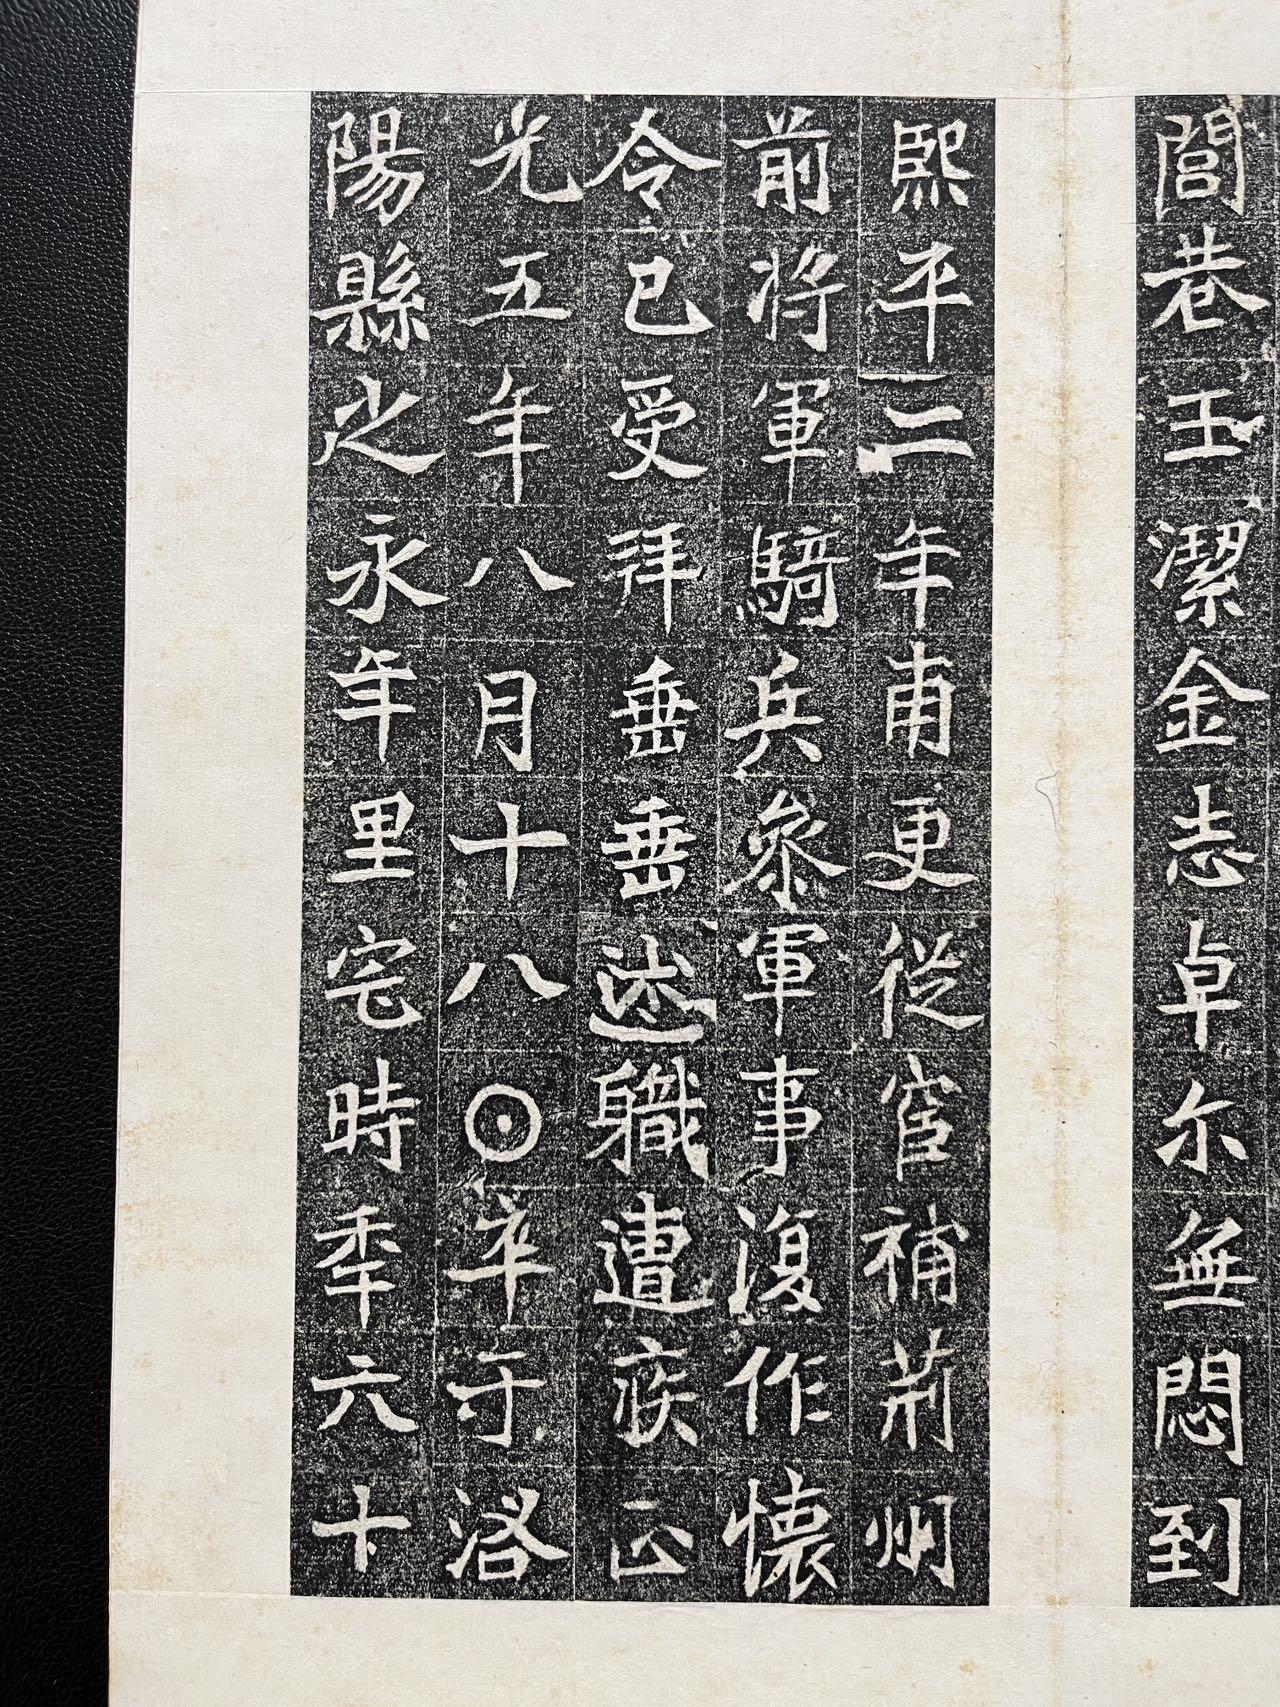 閭巷玉潔金志卓尓無悶到
熙平二年甫更從宦補荊州
前將軍騎兵參軍事復作懷
令已受拜垂垂述職遭疾正
光五年八月十八⊙卒于洛
陽縣之永年里宅時秊六十